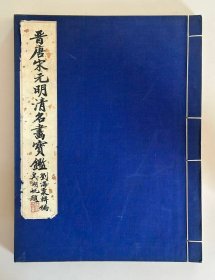 晋唐宋元明清名畫寶鑑
劉海粟緝編
吳湖帆題